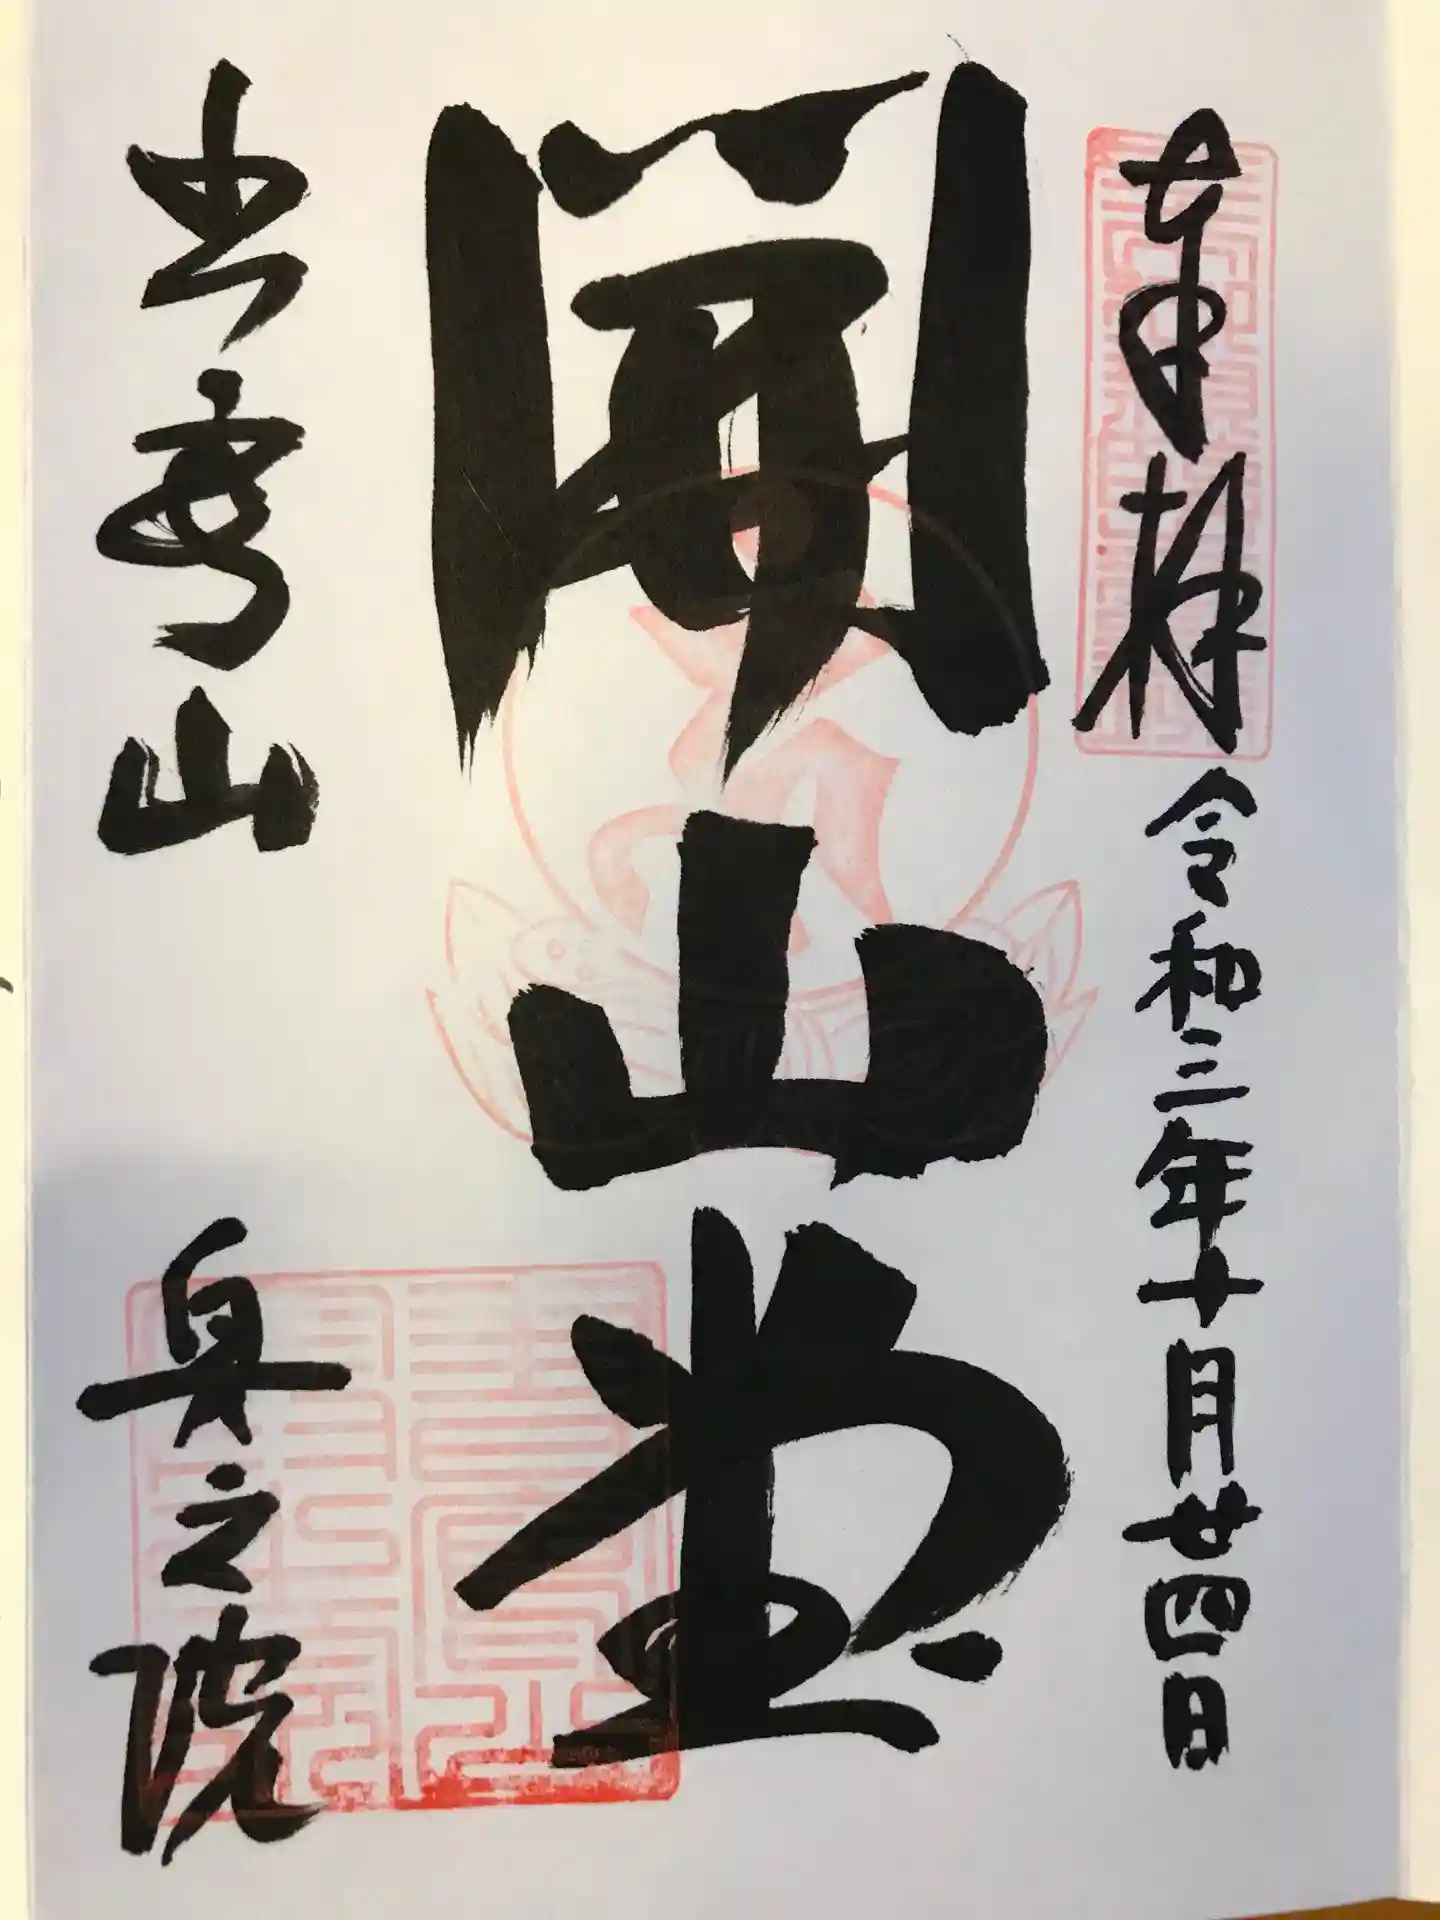 奉拝 令和三年十月廿四日
開山堂
書寫山 奥之院